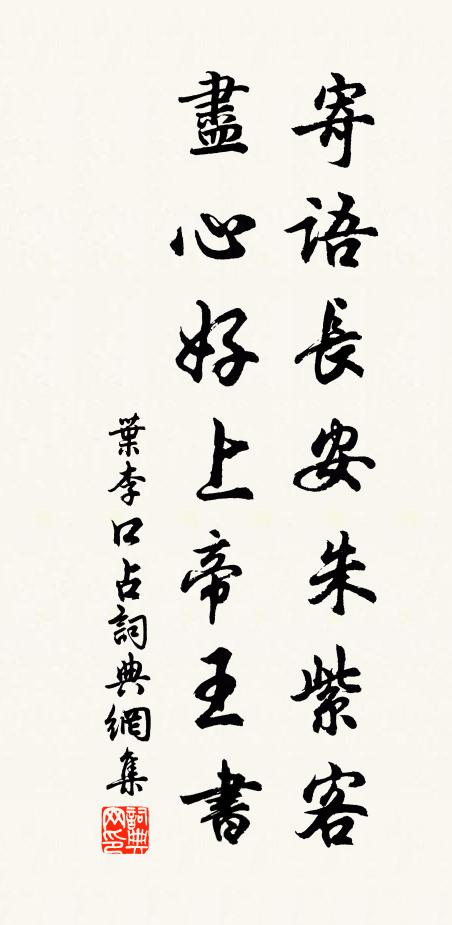 寄語長安朱紫客
盡心好上帝王書
葉李口占詞典網集
詞典網印